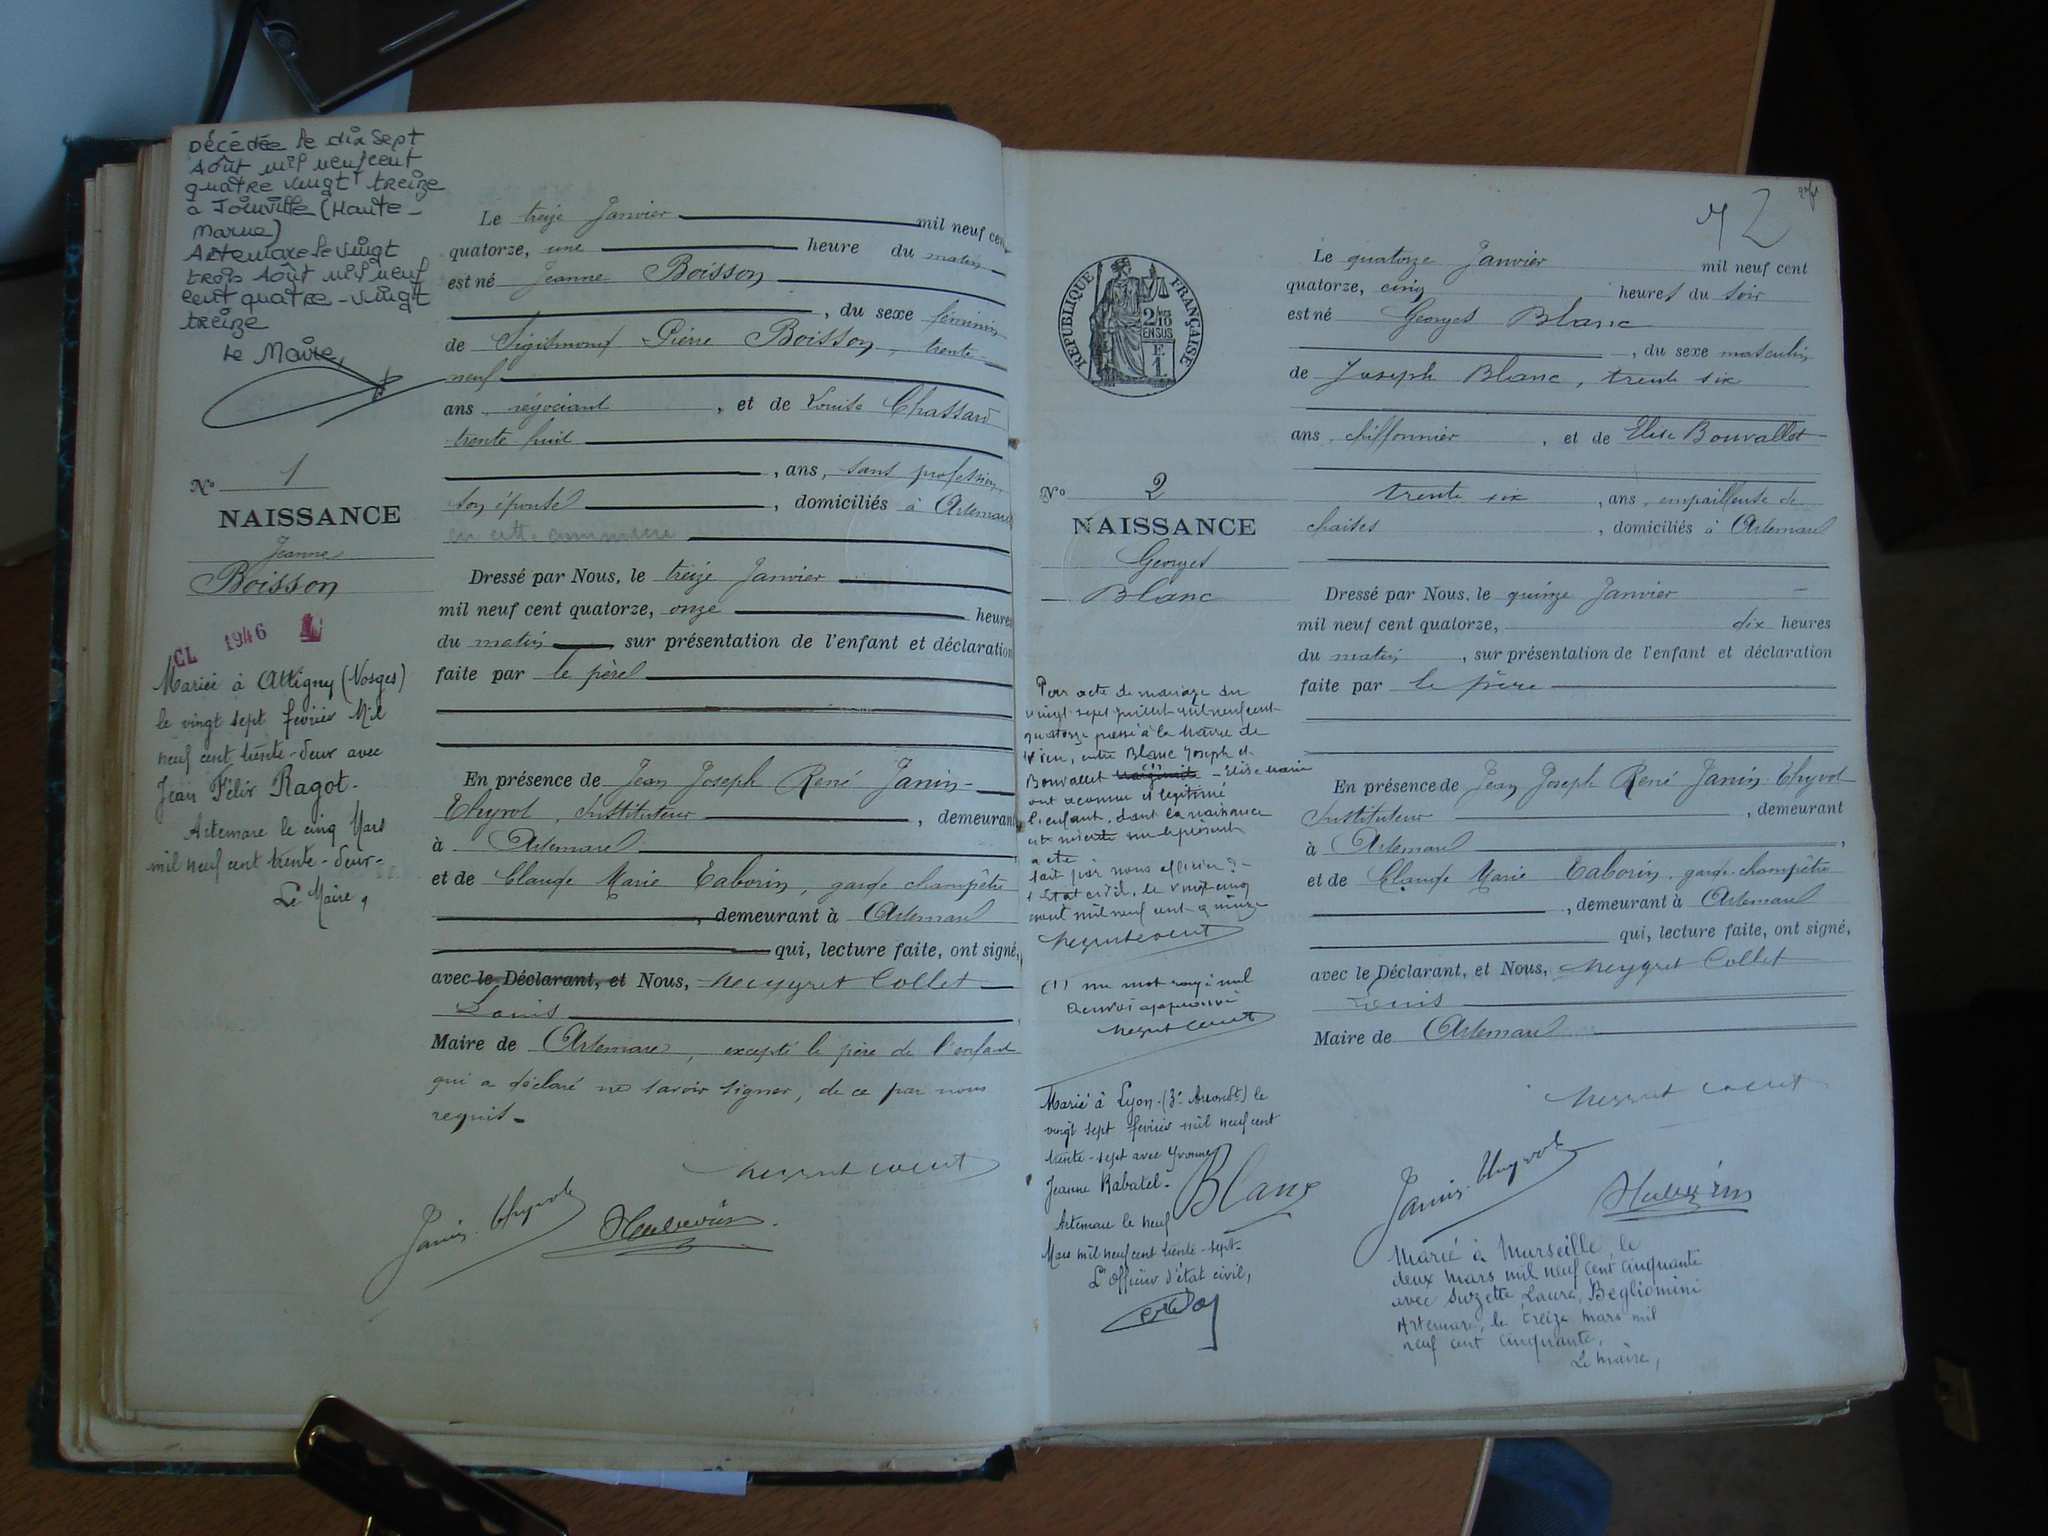 Décédée le dix sept
Août mil neuf cent
quatre vingt treize
a Joinville (Haute-
Marne)
Artemare le vingt
trois Août mil neuf
cent quatre-vingt
treize
Le Maire,
N° 1
NAISSANCE
Jeanne
Boisson
CL 1946
Mariée à Attigny (Vosges)
le vingt sept février Mil
neuf cent trente-deux avec
Jean Félix Ragot.
Artemare le cinq Mars
mil neuf cent trente-deux-
Le Maire,
Le treize Janvier mil neuf cent
quatorze, une heure du matin
est né Jeanne Boisson
, du sexe féminin
de Sigismond Pierre Boisson, trente-
neuf
ans, négociant, et de Louise Chassard
trente huit
, ans, sans profession,
son épouse, domiciliés à Artemare
en cette commune
Dressé par Nous, le treize Janvier
mil neuf cent quatorze, onze heures
du matin sur présentation de l'enfant et déclaration
faite par le père
En présence de Jean Joseph René Janin-
Thyvol, Instituteur, demeurant
à Artemare
et de Claude Marie Taborin, garde champêtre
, demeurant à Artemare
qui, lecture faite, ont signé,
avec le Déclarant, et Nous, Neyret Collet
Louis
Maire de Artemare, excepté le père de l'enfant
qui a déclaré ne savoir signer, de ce par nous
requis-
Janin-Thyvol
2
RÉPUBLIQUE FRANÇAISE
N° 2
NAISSANCE
Georges
Blanc
Par acte de mariage du
vingt sept juillet mil neuf cent
quatorze passé à la Mairie de
Vieu, entre Blanc Joseph et
Bouvallet (1) - Elise Marie
ont reconnu et légitimé
l'enfant, dont la naissance
est inscrite sur le présent
acte
Fait par nous officier d'
Etat civil, le vingt cinq
août mil neuf cent quinze
(1) un mot rayé nul
Renvoi approuvé
Marié à Lyon-(3e Arrondt) le
vingt sept février mil neuf cent
trente-sept avec Yvonne
Jeanne Rabatel-
Artemare le neuf
Mars mil neuf cent trente-sept-
L'Officier d'état civil,
Le quatorze Janvier mil neuf cent
quatorze, cinq heures du soir
est né Georges Blanc
, du sexe masculin
de Joseph Blanc, trente six
ans, chiffonnier, et de Elise Bouvallet
trente six, ans, empailleuse de
chaises, domiciliés à Artemare
Dressé par Nous, le quinze Janvier
mil neuf cent quatorze, dix heures
du matin, sur présentation de l'enfant et déclaration
faite par le père
En présence de Jean Joseph René Janin-Thyvol
Instituteur, demeurant
à Artemare
et de Claude Marie Taborin, garde-champêtre
, demeurant à Artemare
qui, lecture faite, ont signé,
avec le Déclarant, et Nous, Neyret Collet
Louis
Maire de Artemare
Blanc
Janin-Thyvol
Marié à Marseille, le
deux mars mil neuf cent cinquante
avec Suzette Laure, Begliomini
Artemare, le treize mars mil
neuf cent cinquante,
Le Maire,